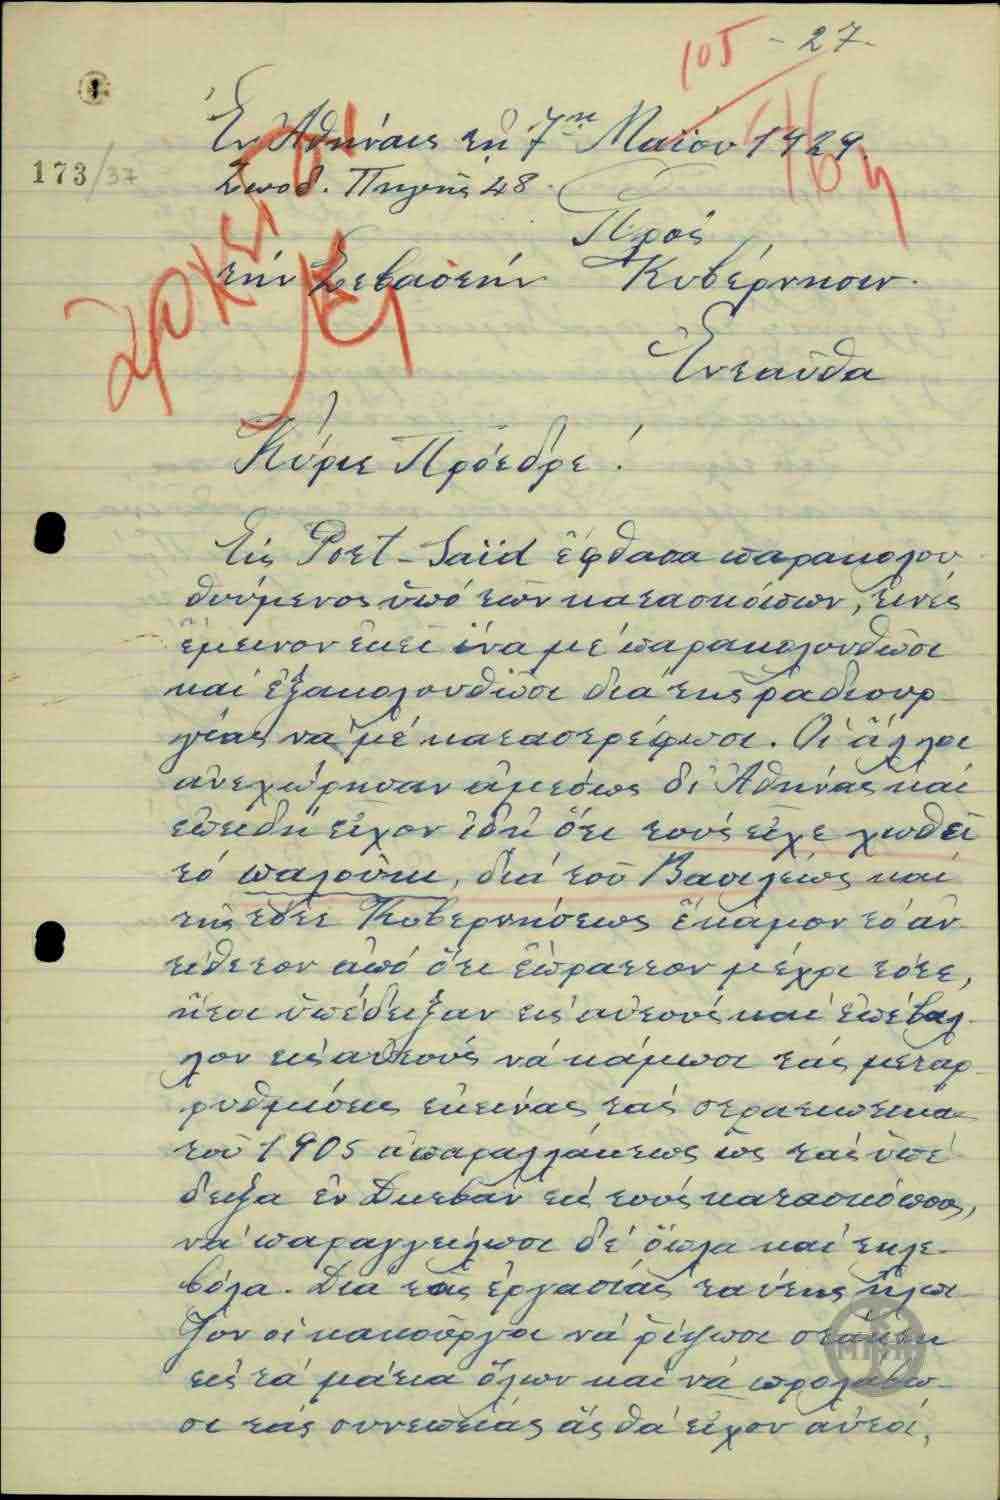 105 - 27.
173/37
Ἐν Ἀθήναις τῇ 7ῃ Μαΐου 1929.
Ζωοδ. Πηγῆς 48.
Πρός
τήν Σεβαστήν Κυβέρνησιν.
Ἐνταῦθα
Κύριε Πρόεδρε!
Εἰς Port-Saïd ἔφθασα παρακολου
θούμενος ὑπό τῶν κατασκόπων, τινές
ἔμεινον ἐκεῖ ἵνα μέ παρακολουθῶσι
καί ἐξακολουθῶσι διά τῆς ραδιουρ
γίας νά μέ καταστρέφωσι. Οἱ ἄλλοι
ἀνεχώρησαν ἀμέσως δι Ἀθήνας καί
ἐπειδή εἶχον ἰδῆ ὅτι τούς εἶχε χωθεῖ
τό παλοῦκι, διά τοῦ Βασιλέως καί
τῆς τότε Κυβερνήσεως ἔκαμον τό ἀν
τίθετον ἀπό ὅτι ἔπραττον μέχρι τότε,
ἤτοι ὑπέδειξαν εἰς αὐτούς καί ἐπέβαλ
λον εἰς αὐτούς νά κάμωσι τάς μεταρ
ρυθμίσεις ἐκείνας τάς στρατιωτικάς
τοῦ 1905 ἀπαραλλάκτως ὡς τάς ὑπέ
δειξα ἐν εἰς τούς κατασκόπους,
νά παραγγείλωσι δέ ὅπλα καί τηλε
βόλα. Διά τῆς ἐργασίας ταύτης ἤλπι
ζον οἱ κακοῦργοι νά ρίψωσι στάκτη
εἰς τά μάτια ὅλων καί νά προλάβω
σι τάς συνεπείας ἅς θά εἶχον αὐτοί,